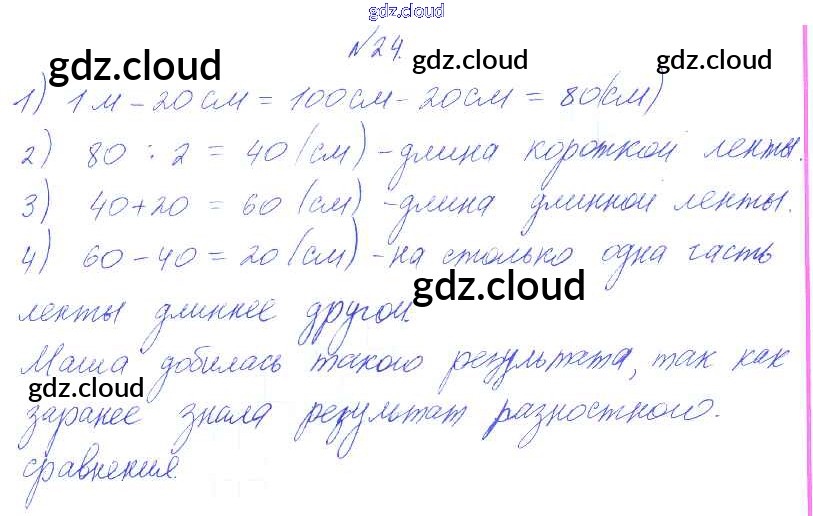 gdz.cloud
№24.
gdz.cloud gdz.cloud gdz.cloud
1) 1 м - 20 см = 100 см - 20 см = 80 (см)
2) 80 : 2 = 40 (см) - длина короткой ленты.
3) 40 + 20 = 60 (см) - длина длинной ленты.
4) 60 - 40 = 20 (см) - на столько одна часть
gdz.cloud
ленты длиннее другой.
Маша добилась такого результата, так как
gdz.cloud
заранее знала результат разностного.
сравнения.